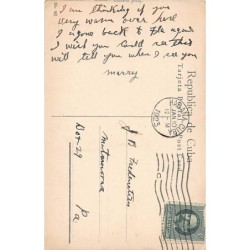 I am thinking of you
very warm over here
I am gone back to the again
I wish you could see this
will tell you when I see you
marry
Republica de Cuba
Tarjeta Postal Post Card
J B
Box 29
Pa